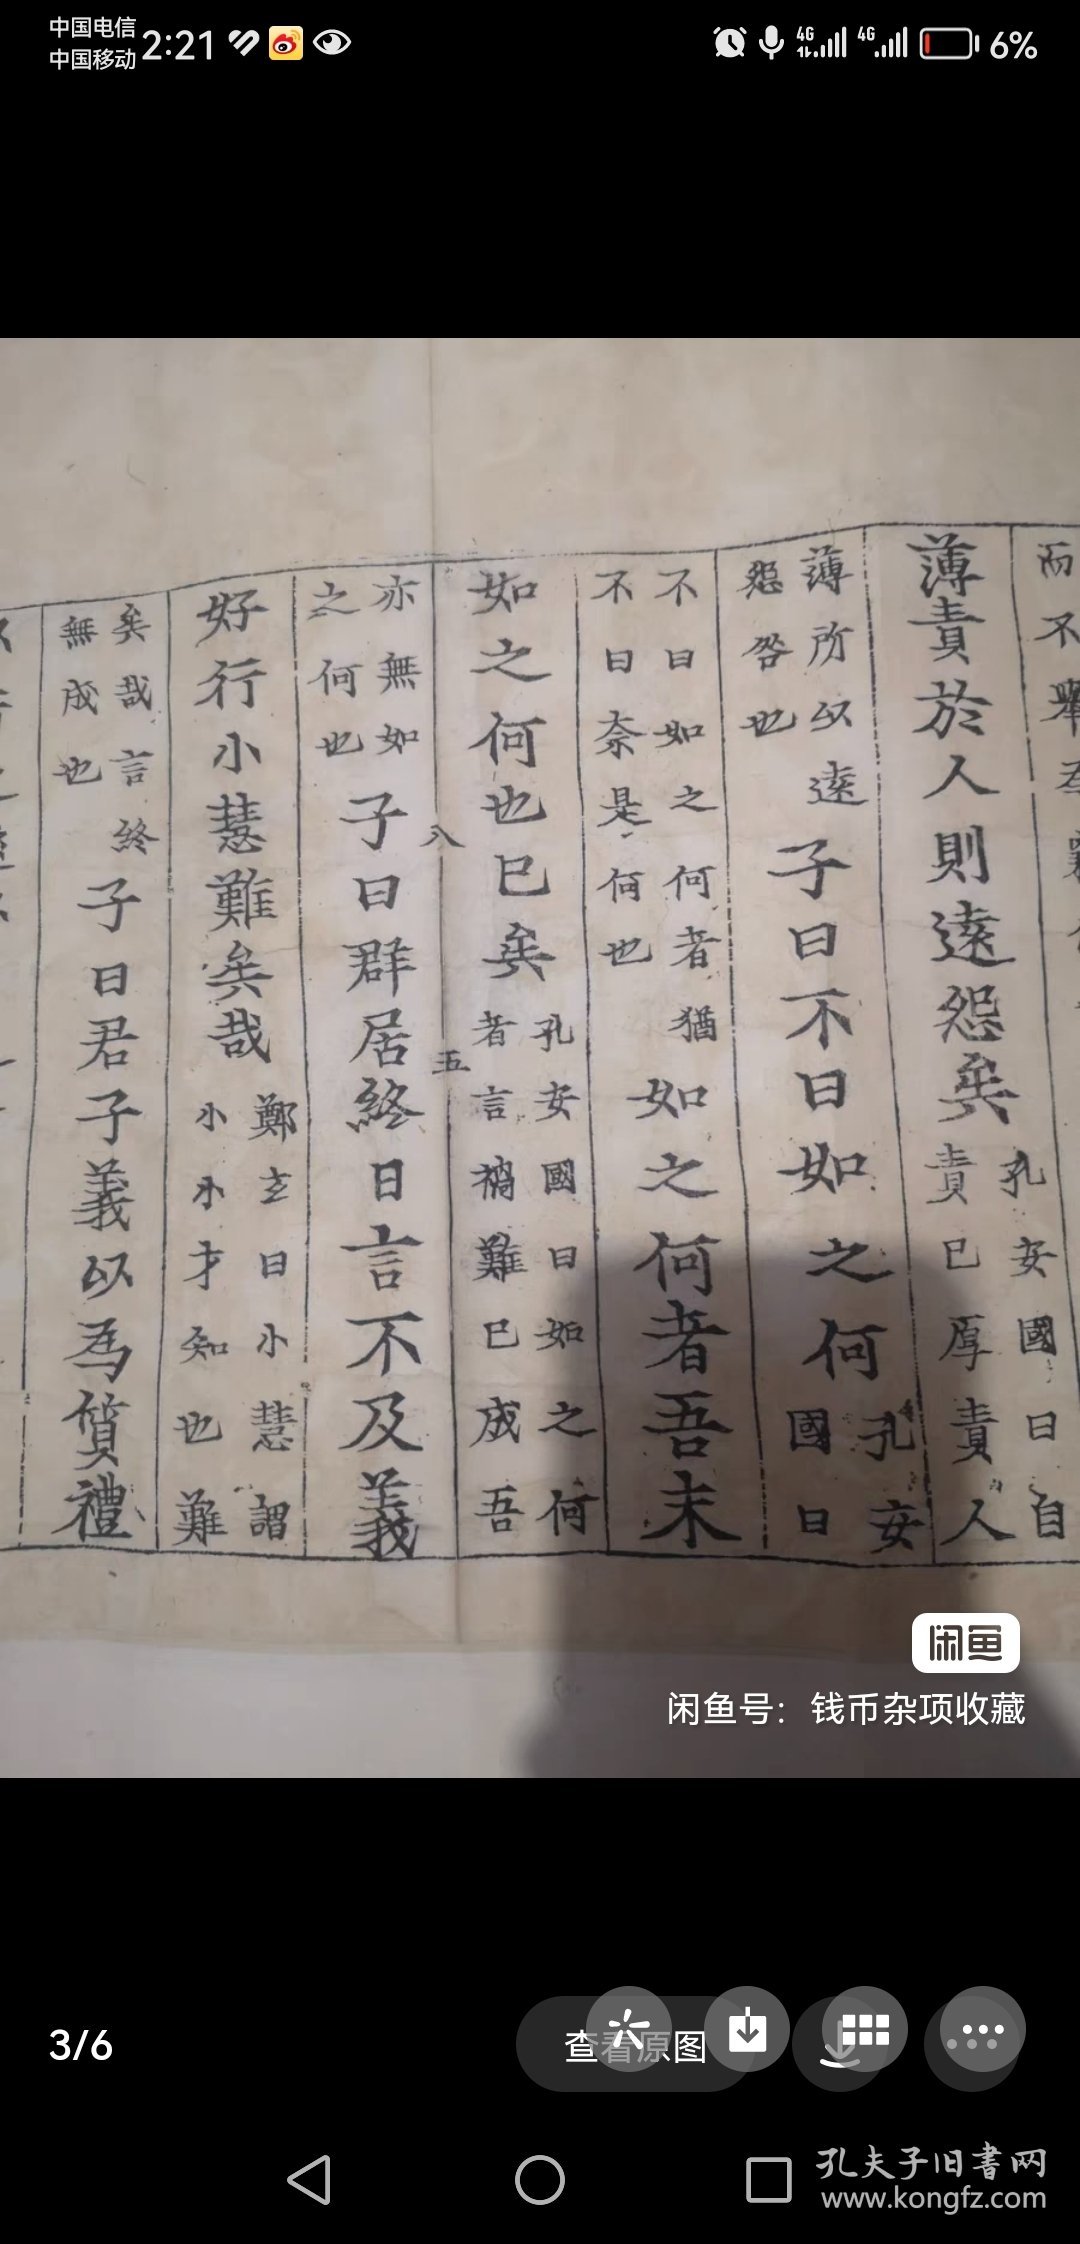 中国电信
中国移动 2:21 4G 4G 6%
而不舉
薄責於人則遠怨矣 孔安國曰自
責已厚責人
薄所以遠
怨咎也 子曰不曰如之何 孔安
國曰
不曰如之何者猶
不曰奈是何也 如之何者吾末
如之何也已矣 孔安國曰如之何
者言禍難已成吾
八 五
亦無如
之何也 子曰群居終日言不及義
好行小慧難矣哉 鄭玄曰小慧謂
小小才知也難
矣哉言終
無成也 子曰君子義以為質禮
闲鱼
闲鱼号：钱币杂项收藏
3/6
查看原图
孔夫子旧书网
www.kongfz.com